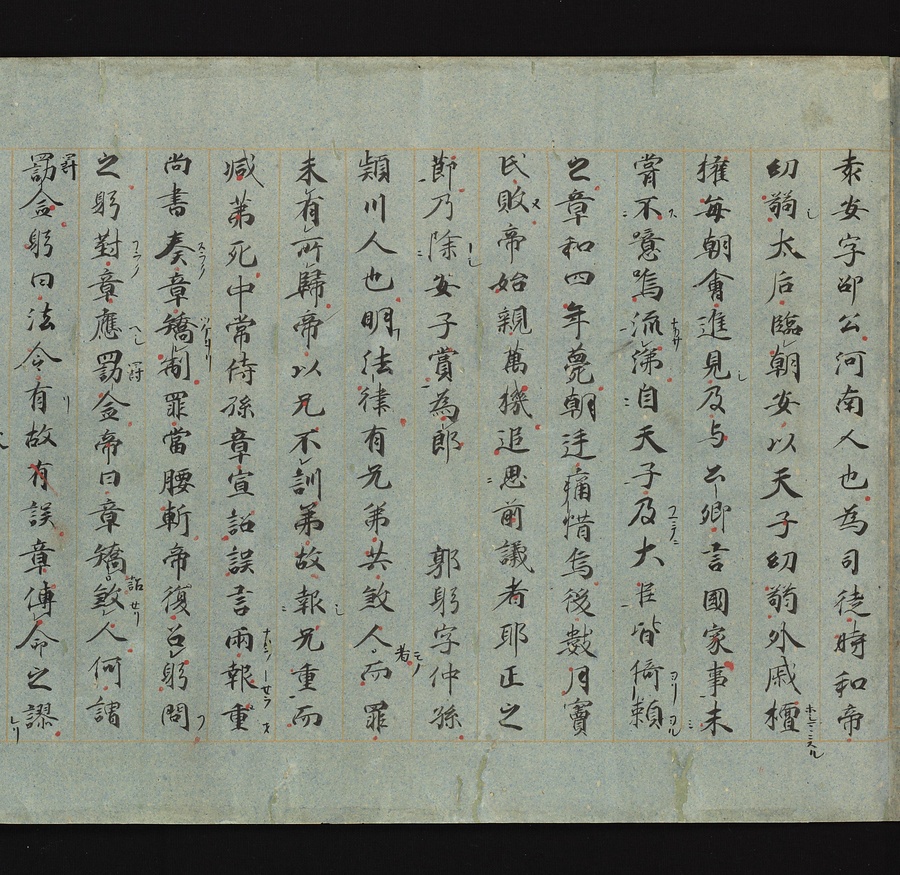 袁安字邵公河南人也為司徒時和帝
幼弱太后臨朝安以天子幼弱外戚擅
權每朝會進見及与公卿言國家事未
甞不噫嗚流涕自天子及大臣皆倚賴
之章和四年薨朝廷痛惜焉後數月竇
氏敗帝始親萬機追思前議者耶正之
節乃除安子賞為郎　郭躬字仲孫
穎川人也明法律有兄弟共煞人而罪
未有所歸帝以兄不訓弟故報兄重而
减弟死中常侍孫章宣詔誤言兩報重
尚書奏章矯制罪當腰斬帝復召躬問
之躬對章應罰金帝曰章矯煞人何謂
罰金躬曰法令有故有誤章傳命之謬